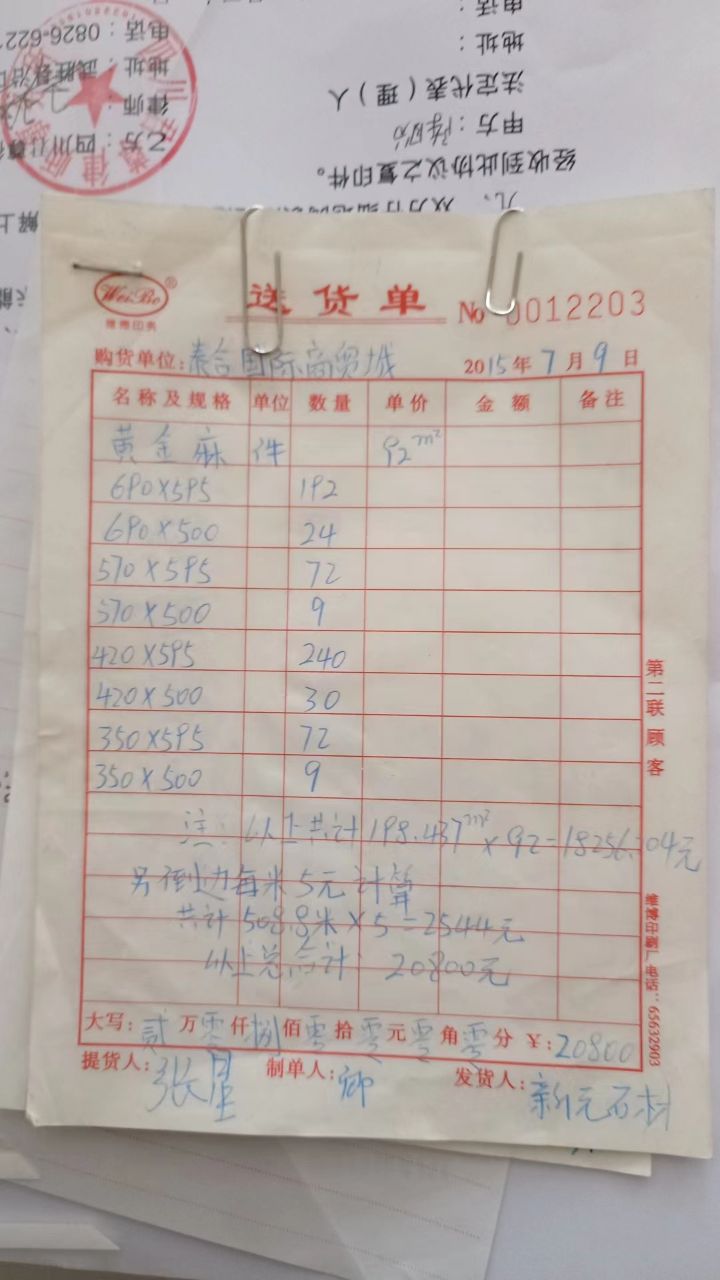 电话：
地址：
法定代表（理）人
甲方：
经收到此协议之复印件。
电话：0826-622
地址：武胜县沿口
律师：
乙方：四川
WeiBo®
维博印务
送货单
No 0012203
购货单位：泰合国际商贸城 2015年7月9日
名称及规格 单位 数量 单价 金额 备注
黄金麻 件 92m²
690×595 192
690×500 24
570×595 72
570×500 9
420×595 240
420×500 30
350×595 72
350×500 9
注：以上共计198.437m²×92=18256.04元
另倒边每米5元计算
共计508.8米×5=2544元
以上总合计：20800元
大写：贰万零仟捌佰零拾零元零角零分 ¥：20800
提货人：张星 制单人：卿 发货人：新元石材
第二联 顾客
维博印刷厂 电话：65632903